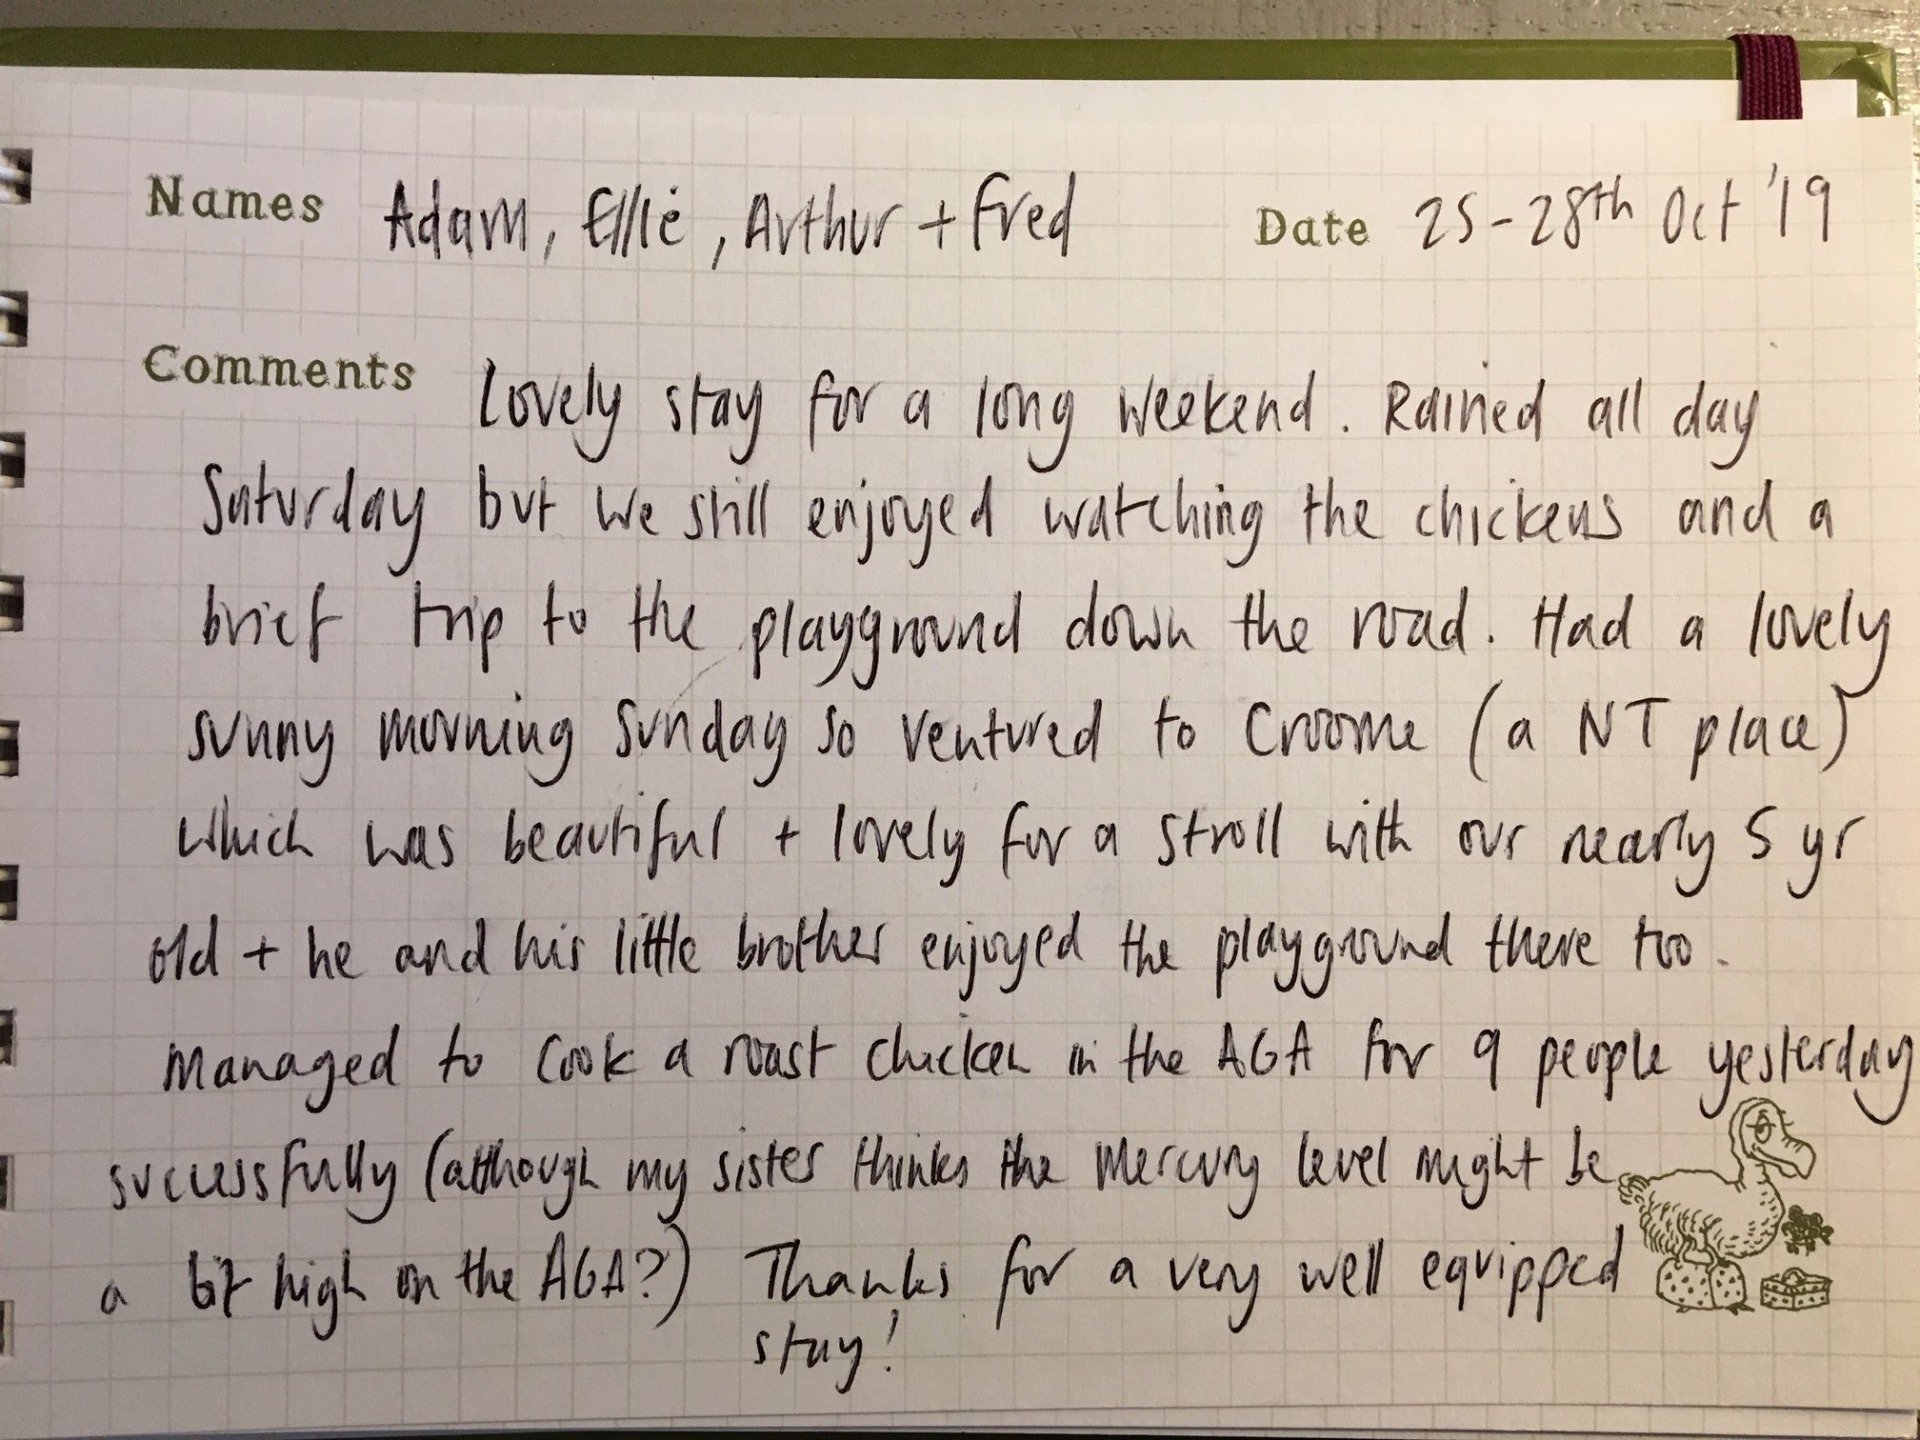 Names Adam, Ellie, Arthur + Fred Date 25-28th Oct '19
Comments Lovely stay for a long weekend. Rained all day
Saturday but we still enjoyed watching the chickens and a
brief trip to the playground down the road. Had a lovely
sunny morning Sunday so ventured to Croome (a NT place)
which was beautiful + lovely for a stroll with our nearly 5 yr
old + he and his little brother enjoyed the playground there too.
Managed to cook a roast chicken in the AGA for 9 people yesterday
successfully (although my sister thinks the mercury level might be
a bit high on the AGA?) Thanks for a very well equipped
stay!